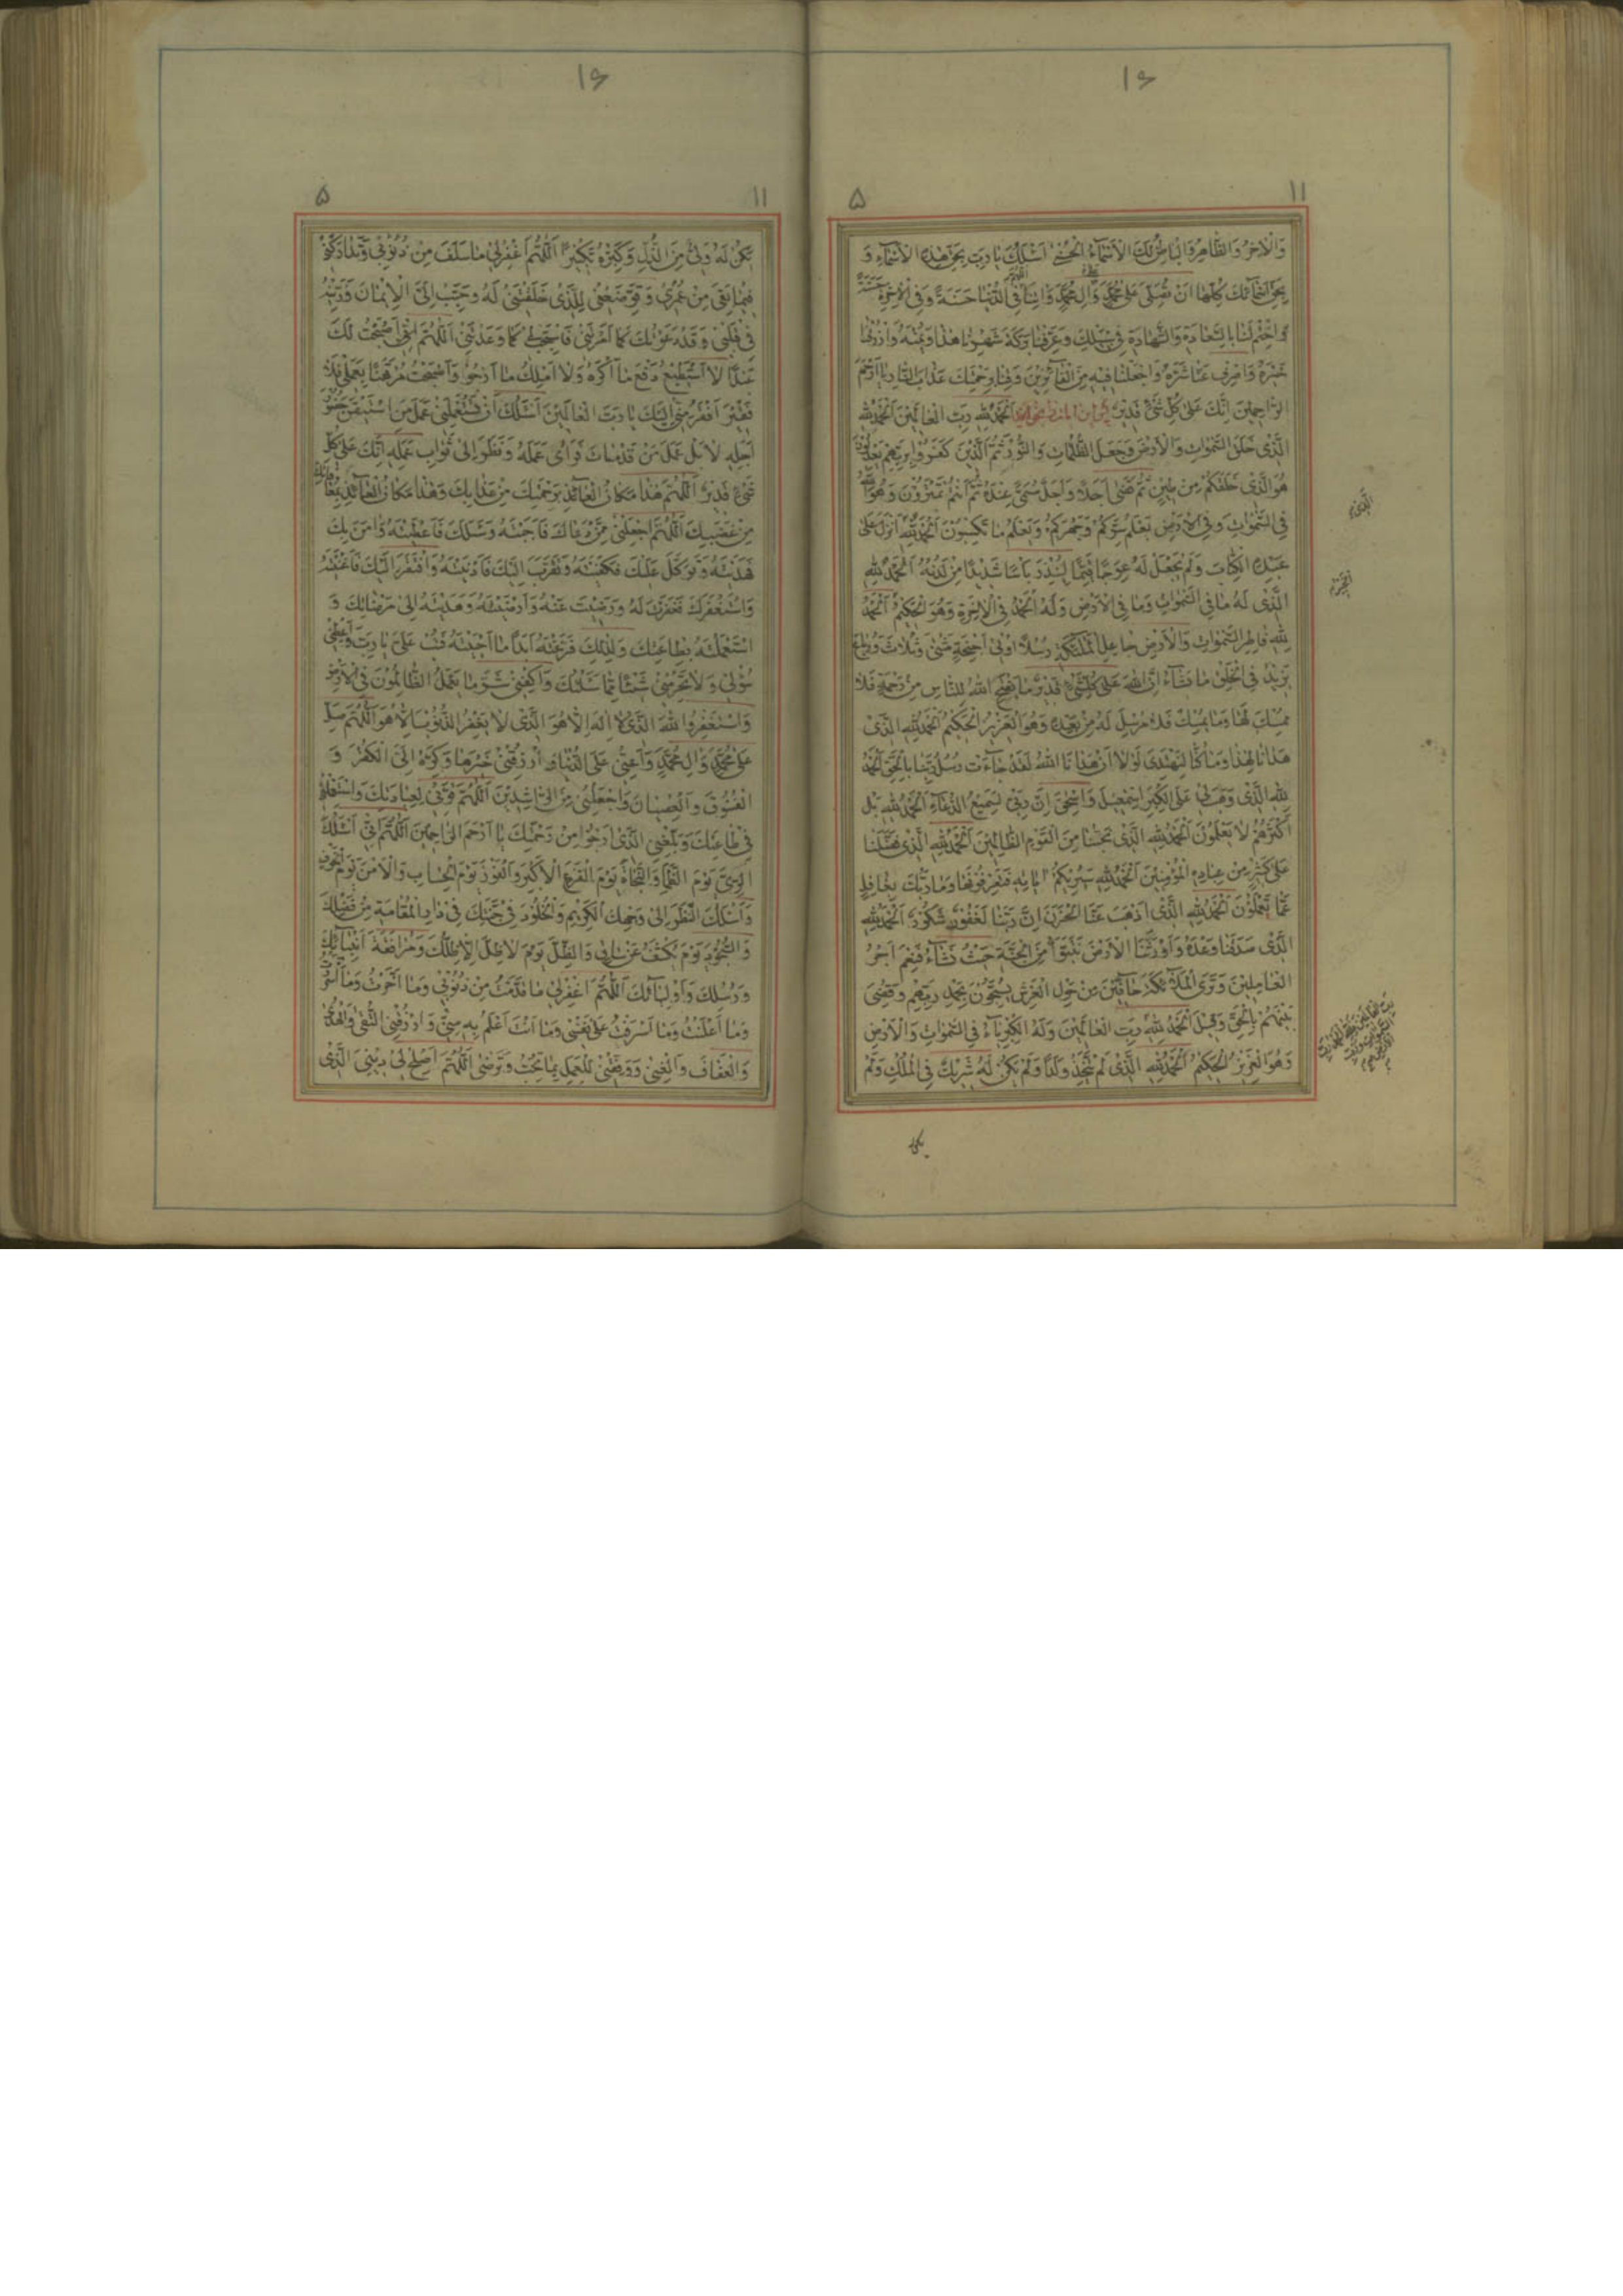 ١٦
١١
٥
وَالْاٰخِرُ وَالظَّاهِرُ وَالْبَاطِنُ لَكَ الْاَسْمَاءُ الْحُسْنٰى اَسْئَلُكَ يَا رَبِّ بِحَقِّ هٰذِهِ الْاَسْمَاءِ وَ
بِحَقِّ اَسْمَائِكَ كُلِّهَا اَنْ تُصَلِّىَ عَلٰى مُحَمَّدٍ وَاٰلِ مُحَمَّدٍ وَاٰتِنَا فِى الدُّنْيَا حَسَنَةً وَفِى الْاٰخِرَةِ حَسَنَةً
وَاخْتِمْ لَنَا بِالسَّعَادَةِ وَالشَّهَادَةِ فِى سَبِيلِكَ وَعَرِّفْنَا بَرَكَةَ شَهْرِنَا هٰذَا وَيُمْنَهُ وَارْزُقْنَا
خَيْرَهُ وَاصْرِفْ عَنَّا شَرَّهُ وَاجْعَلْنَا فِيهِ مِنَ الْفَائِزِينَ وَقِنَا بِرَحْمَتِكَ عَذَابَ النَّارِ يَا اَرْحَمَ
الرَّاحِمِينَ اِنَّكَ عَلٰى كُلِّ شَىْءٍ قَدِيرٌ اَلْحَمْدُ لِلّٰهِ رَبِّ الْعَالَمِينَ اَلْحَمْدُ لِلّٰهِ
الَّذِى خَلَقَ السَّمٰوَاتِ وَالْاَرْضَ وَجَعَلَ الظُّلُمَاتِ وَالنُّورَ ثُمَّ الَّذِينَ كَفَرُوا بِرَبِّهِمْ يَعْدِلُونَ
هُوَ الَّذِى خَلَقَكُمْ مِنْ طِينٍ ثُمَّ قَضٰى اَجَلًا وَاَجَلٌ مُسَمًّى عِنْدَهُ ثُمَّ اَنْتُمْ تَمْتَرُونَ وَهُوَ اللّٰهُ
فِى السَّمٰوَاتِ وَفِى الْاَرْضِ يَعْلَمُ سِرَّكُمْ وَجَهْرَكُمْ وَيَعْلَمُ مَا تَكْسِبُونَ اَلْحَمْدُ لِلّٰهِ اَنْزَلَ عَلٰى
الَّذِى
عَبْدِهِ الْكِتَابَ وَلَمْ يَجْعَلْ لَهُ عِوَجًا قَيِّمًا لِيُنْذِرَ بَاْسًا شَدِيدًا مِنْ لَدُنْهُ اَلْحَمْدُ لِلّٰهِ
الَّذِى لَهُ مَا فِى السَّمٰوَاتِ وَمَا فِى الْاَرْضِ وَلَهُ الْحَمْدُ فِى الْاٰخِرَةِ وَهُوَ الْحَكِيمُ اَلْحَمْدُ
لِلّٰهِ فَاطِرِ السَّمٰوَاتِ وَالْاَرْضِ جَاعِلِ الْمَلٰئِكَةِ رُسُلًا اُولِى اَجْنِحَةٍ مَثْنٰى وَثُلَاثَ وَرُبَاعَ
يَزِيدُ فِى الْخَلْقِ مَا يَشَاءُ اِنَّ اللّٰهَ عَلٰى كُلِّ شَىْءٍ قَدِيرٌ مَا يَفْتَحِ اللّٰهُ لِلنَّاسِ مِنْ رَحْمَةٍ فَلَا
مُمْسِكَ لَهَا وَمَا يُمْسِكْ فَلَا مُرْسِلَ لَهُ مِنْ بَعْدِهِ وَهُوَ الْعَزِيزُ الْحَكِيمُ اَلْحَمْدُ لِلّٰهِ الَّذِى
هَدَانَا لِهٰذَا وَمَا كُنَّا لِنَهْتَدِىَ لَوْلَا اَنْ هَدَانَا اللّٰهُ لَقَدْ جَاءَتْ رُسُلُ رَبِّنَا بِالْحَقِّ اَلْحَمْدُ
لِلّٰهِ الَّذِى وَهَبَ لِى عَلَى الْكِبَرِ اِسْمٰعِيلَ وَاِسْحٰقَ اِنَّ رَبِّى لَسَمِيعُ الدُّعَاءِ اَلْحَمْدُ لِلّٰهِ بَلْ
اَكْثَرُهُمْ لَا يَعْلَمُونَ اَلْحَمْدُ لِلّٰهِ الَّذِى نَجَّيٰنَا مِنَ الْقَوْمِ الظَّالِمِينَ اَلْحَمْدُ لِلّٰهِ الَّذِى فَضَّلَنَا
عَلٰى كَثِيرٍ مِنْ عِبَادِهِ الْمُؤْمِنِينَ اَلْحَمْدُ لِلّٰهِ سَيُرِيكُمْ اٰيَاتِهِ فَتَعْرِفُونَهَا وَمَا رَبُّكَ بِغَافِلٍ
عَمَّا تَعْمَلُونَ اَلْحَمْدُ لِلّٰهِ الَّذِى اَذْهَبَ عَنَّا الْحَزَنَ اِنَّ رَبَّنَا لَغَفُورٌ شَكُورٌ اَلْحَمْدُ لِلّٰهِ
الَّذِى صَدَقَنَا وَعْدَهُ وَاَوْرَثَنَا الْاَرْضَ نَتَبَوَّاُ مِنَ الْجَنَّةِ حَيْثُ نَشَاءُ فَنِعْمَ اَجْرُ
الْعَامِلِينَ وَتَرَى الْمَلٰئِكَةَ حَافِّينَ مِنْ حَوْلِ الْعَرْشِ يُسَبِّحُونَ بِحَمْدِ رَبِّهِمْ وَقُضِىَ
بَيْنَهُمْ بِالْحَقِّ وَقِيلَ اَلْحَمْدُ لِلّٰهِ رَبِّ الْعَالَمِينَ وَلَهُ الْكِبْرِيَاءُ فِى السَّمٰوَاتِ وَالْاَرْضِ
وَهُوَ الْعَزِيزُ الْحَكِيمُ اَلْحَمْدُ لِلّٰهِ الَّذِى لَمْ يَتَّخِذْ وَلَدًا وَلَمْ يَكُنْ لَهُ شَرِيكٌ فِى الْمُلْكِ وَلَمْ
يكن
١٦
١١
٥
يَكُنْ لَهُ وَلِىٌّ مِنَ الذُّلِّ وَكَبِّرْهُ تَكْبِيرًا اَللّٰهُمَّ اغْفِرْ لِى مَا سَلَفَ مِنْ ذُنُوبِى
فِيمَا بَقِىَ مِنْ عُمْرِى وَقَوِّ ضَعْفِى لِلَّذِى خَلَقْتَنِى لَهُ وَحَبِّبْ اِلَىَّ الْاِيمَانَ وَزَيِّنْهُ
فِى قَلْبِى وَقَدْ دَعَوْتُكَ كَمَا اَمَرْتَنِى فَاسْتَجِبْ لِى كَمَا وَعَدْتَنِى اَللّٰهُمَّ اِنِّى اَصْبَحْتُ لَكَ
عَبْدًا لَا اَسْتَطِيعُ دَفْعَ مَا اَكْرَهُ وَلَا اَمْلِكُ مَا اَرْجُو وَاَصْبَحْتُ مُرْتَهَنًا بِعَمَلِى فَلَا
فَقِيرَ اَفْقَرُ مِنِّى اِلَيْكَ يَا رَبَّ الْعَالَمِينَ اَسْئَلُكَ اَنْ تَسْتَعْمِلَنِى عَمَلَ مَنِ اسْتَيْقَنَ حُضُورَ
اَجَلِهِ لَا بَلْ عَمَلَ مَنْ قَدْ مَاتَ فَرَاٰى عَمَلَهُ وَنَظَرَ اِلٰى ثَوَابِ عَمَلِهِ اِنَّكَ عَلٰى كُلِّ
شَىْءٍ قَدِيرٌ اَللّٰهُمَّ هٰذَا مَكَانُ الْعَائِذِ بِرَحْمَتِكَ مِنْ عَذَابِكَ وَهٰذَا مَكَانُ الْعَائِذِ بِمُعَافَاتِكَ
مِنْ غَضَبِكَ اَللّٰهُمَّ اجْعَلْنِى مِمَّنْ دَعَاكَ فَاَجَبْتَهُ وَسَئَلَكَ فَاَعْطَيْتَهُ وَاٰمَنَ بِكَ
فَهَدَيْتَهُ وَتَوَكَّلَ عَلَيْكَ فَكَفَيْتَهُ وَتَقَرَّبَ اِلَيْكَ فَاَدْنَيْتَهُ وَافْتَقَرَ اِلَيْكَ فَاَغْنَيْتَهُ
وَاسْتَغْفَرَكَ فَغَفَرْتَ لَهُ وَرَضِيتَ عَنْهُ وَاَرْضَيْتَهُ وَهَدَيْتَهُ اِلٰى مَرْضَاتِكَ وَ
اسْتَعْمَلْتَهُ بِطَاعَتِكَ وَلِذٰلِكَ فَرَّغْتَهُ اَبَدًا مَا اَحْيَيْتَهُ فَتُبْ عَلَىَّ يَا رَبِّ وَاَعْطِنِى
سُؤْلِى وَلَا تَحْرِمْنِى شَيْئًا مِمَّا سَئَلْتُكَ وَاكْفِنِى شَرَّ مَا يَعْمَلُ الظَّالِمُونَ فِى الْاَرْضِ
وَاسْتَغْفِرُوا اللّٰهَ الَّذِى لَا اِلٰهَ اِلَّا هُوَ الَّذِى لَا يَغْفِرُ الذُّنُوبَ اِلَّا هُوَ اَللّٰهُمَّ صَلِّ
عَلٰى مُحَمَّدٍ وَاٰلِ مُحَمَّدٍ وَاَعِنِّى عَلَى الدُّنْيَا وَارْزُقْنِى خَيْرَهَا وَكَرِّهْ اِلَىَّ الْكُفْرَ وَ
الْفُسُوقَ وَالْعِصْيَانَ وَاجْعَلْنِى مِنَ الرَّاشِدِينَ اَللّٰهُمَّ قَوِّنِى لِعِبَادَتِكَ وَاسْتَعْمِلْنِى
فِى طَاعَتِكَ وَبَلِّغْنِى الَّذِى اَرْجُو مِنْ رَحْمَتِكَ يَا اَرْحَمَ الرَّاحِمِينَ اَللّٰهُمَّ اِنِّى اَسْئَلُكَ
الرِّىَّ يَوْمَ الظَّمَاِ وَالنَّجَاةَ يَوْمَ الْفَزَعِ الْاَكْبَرِ وَالْفَوْزَ يَوْمَ الْحِسَابِ وَالْاَمْنَ يَوْمَ الْخَوْفِ
وَاَسْئَلُكَ النَّظَرَ اِلٰى وَجْهِكَ الْكَرِيمِ وَالْخُلُودَ فِى جَنَّتِكَ فِى دَارِ الْمُقَامَةِ مِنْ فَضْلِكَ
وَالسُّجُودَ يَوْمَ يُكْشَفُ عَنْ سَاقٍ وَالظِّلَّ يَوْمَ لَا ظِلَّ اِلَّا ظِلُّكَ وَمُرَافَقَةَ اَنْبِيَائِكَ
وَرُسُلِكَ وَاَوْلِيَائِكَ اَللّٰهُمَّ اغْفِرْ لِى مَا قَدَّمْتُ مِنْ ذُنُوبِى وَمَا اَخَّرْتُ وَمَا اَسْرَرْتُ
وَمَا اَعْلَنْتُ وَمَا اَسْرَفْتُ عَلٰى نَفْسِى وَمَا اَنْتَ اَعْلَمُ بِهِ مِنِّى وَارْزُقْنِى التُّقٰى وَالْهُدٰى
وَالْعَفَافَ وَالْغِنٰى وَوَفِّقْنِى لِلْعَمَلِ بِمَا تُحِبُّ وَتَرْضٰى اَللّٰهُمَّ اَصْلِحْ لِى دِينِىَ الَّذِى